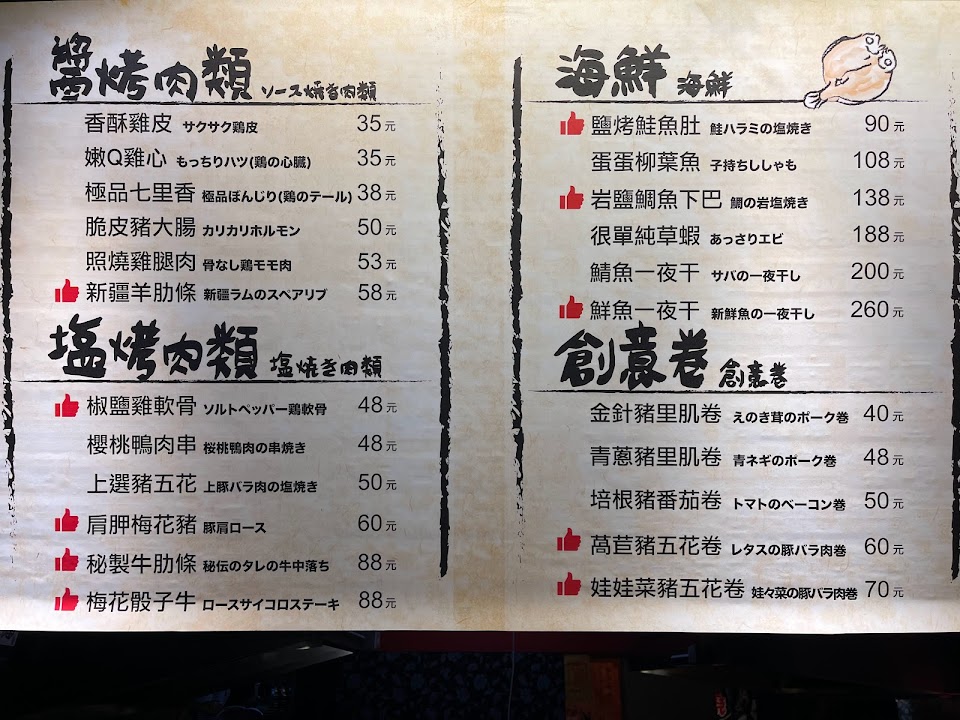 醬烤肉類 ソース焼き肉類
香酥雞皮 サクサク鶏皮 35元
嫩Q雞心 もっちりハツ(鶏の心臓) 35元
極品七里香 極品ぼんじり(鶏のテール) 38元
脆皮豬大腸 カリカリホルモン 50元
照燒雞腿肉 骨なし鶏モモ肉 53元
新疆羊肋條 新疆ラムのスペアリブ 58元
塩烤肉類 塩焼き肉類
椒鹽雞軟骨 ソルトペッパー鶏軟骨 48元
櫻桃鴨肉串 桜桃鴨肉の串焼き 48元
上選豬五花 上豚バラ肉の塩焼き 50元
肩胛梅花豬 豚肩ロース 60元
秘製牛肋條 秘伝のタレの牛中落ち 88元
梅花骰子牛 ロースサイコロステーキ 88元
海鮮 海鮮
鹽烤鮭魚肚 鮭ハラミの塩焼き 90元
蛋蛋柳葉魚 子持ちししゃも 108元
岩鹽鯛魚下巴 鯛の岩塩焼き 138元
很單純草蝦 あっさりエビ 188元
鯖魚一夜干 サバの一夜干し 200元
鮮魚一夜干 新鮮魚の一夜干し 260元
創意卷 創意巻
金針豬里肌卷 えのき茸のポーク巻 40元
青蔥豬里肌卷 青ネギのポーク巻 48元
培根豬番茄卷 トマトのベーコン巻 50元
萵苣豬五花卷 レタスの豚バラ肉巻 60元
娃娃菜豬五花卷 娃々菜の豚バラ肉巻 70元